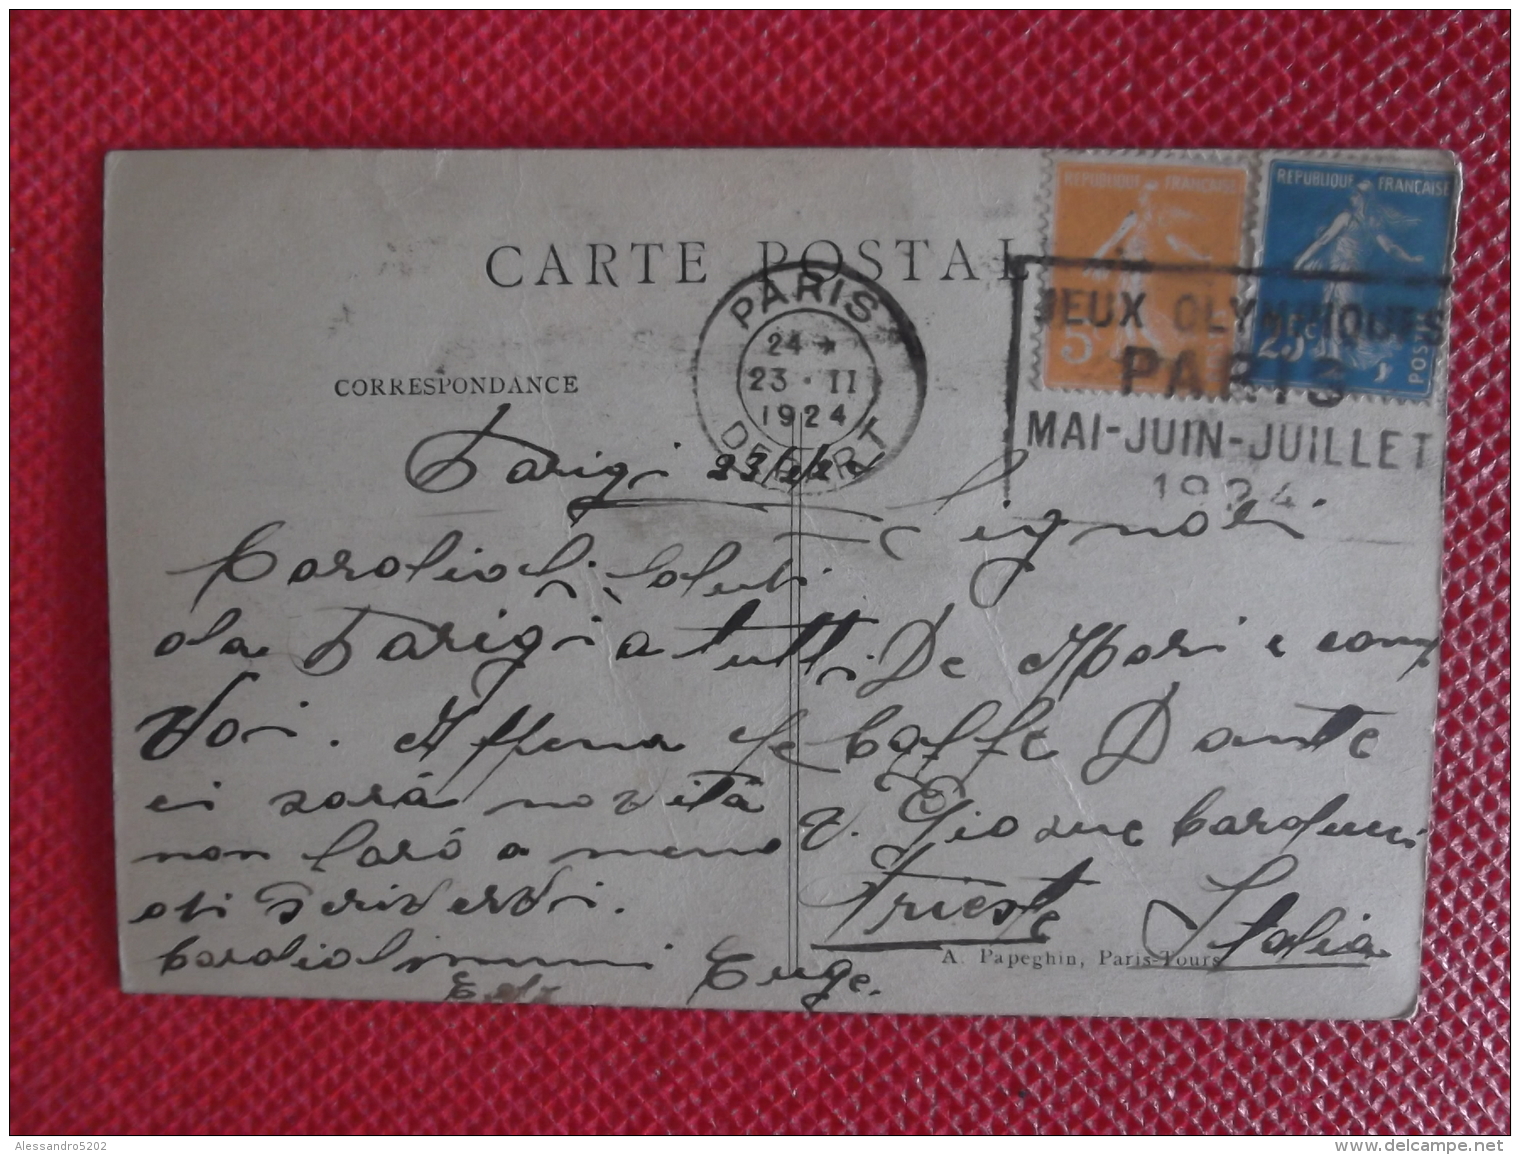 CARTE POSTALE
REPUBLIQUE FRANÇAISE
5c
REPUBLIQUE FRANÇAISE
25c
POSTES
PARIS
24 *
23 · II
1924
DEPART
JEUX OLYMPIQUES
PARIS
MAI-JUIN-JUILLET
1924.
CORRESPONDANCE
Parigi 23/2/24
Cordiali Saluti
da Parigi a tutti
Voi. Appena
ci sarà novità
non farò a meno
di scrivervi.
Cordialissimi
Euge.
Signori
De Mori e comp
Caffe Dante
V. Giosue Carducci
Trieste Italia
A. Papeghin, Paris-Tours
Alessandro5202
www.delcampe.net